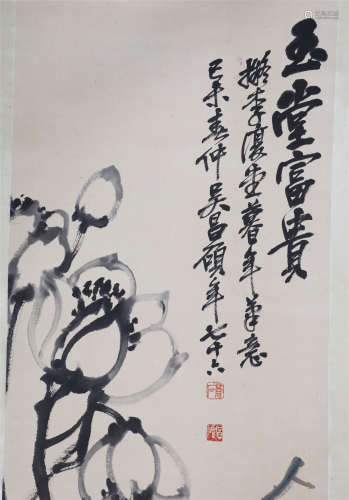 玉堂富貴
擬李復堂暮年筆意
己未春仲吳昌碩年七十六